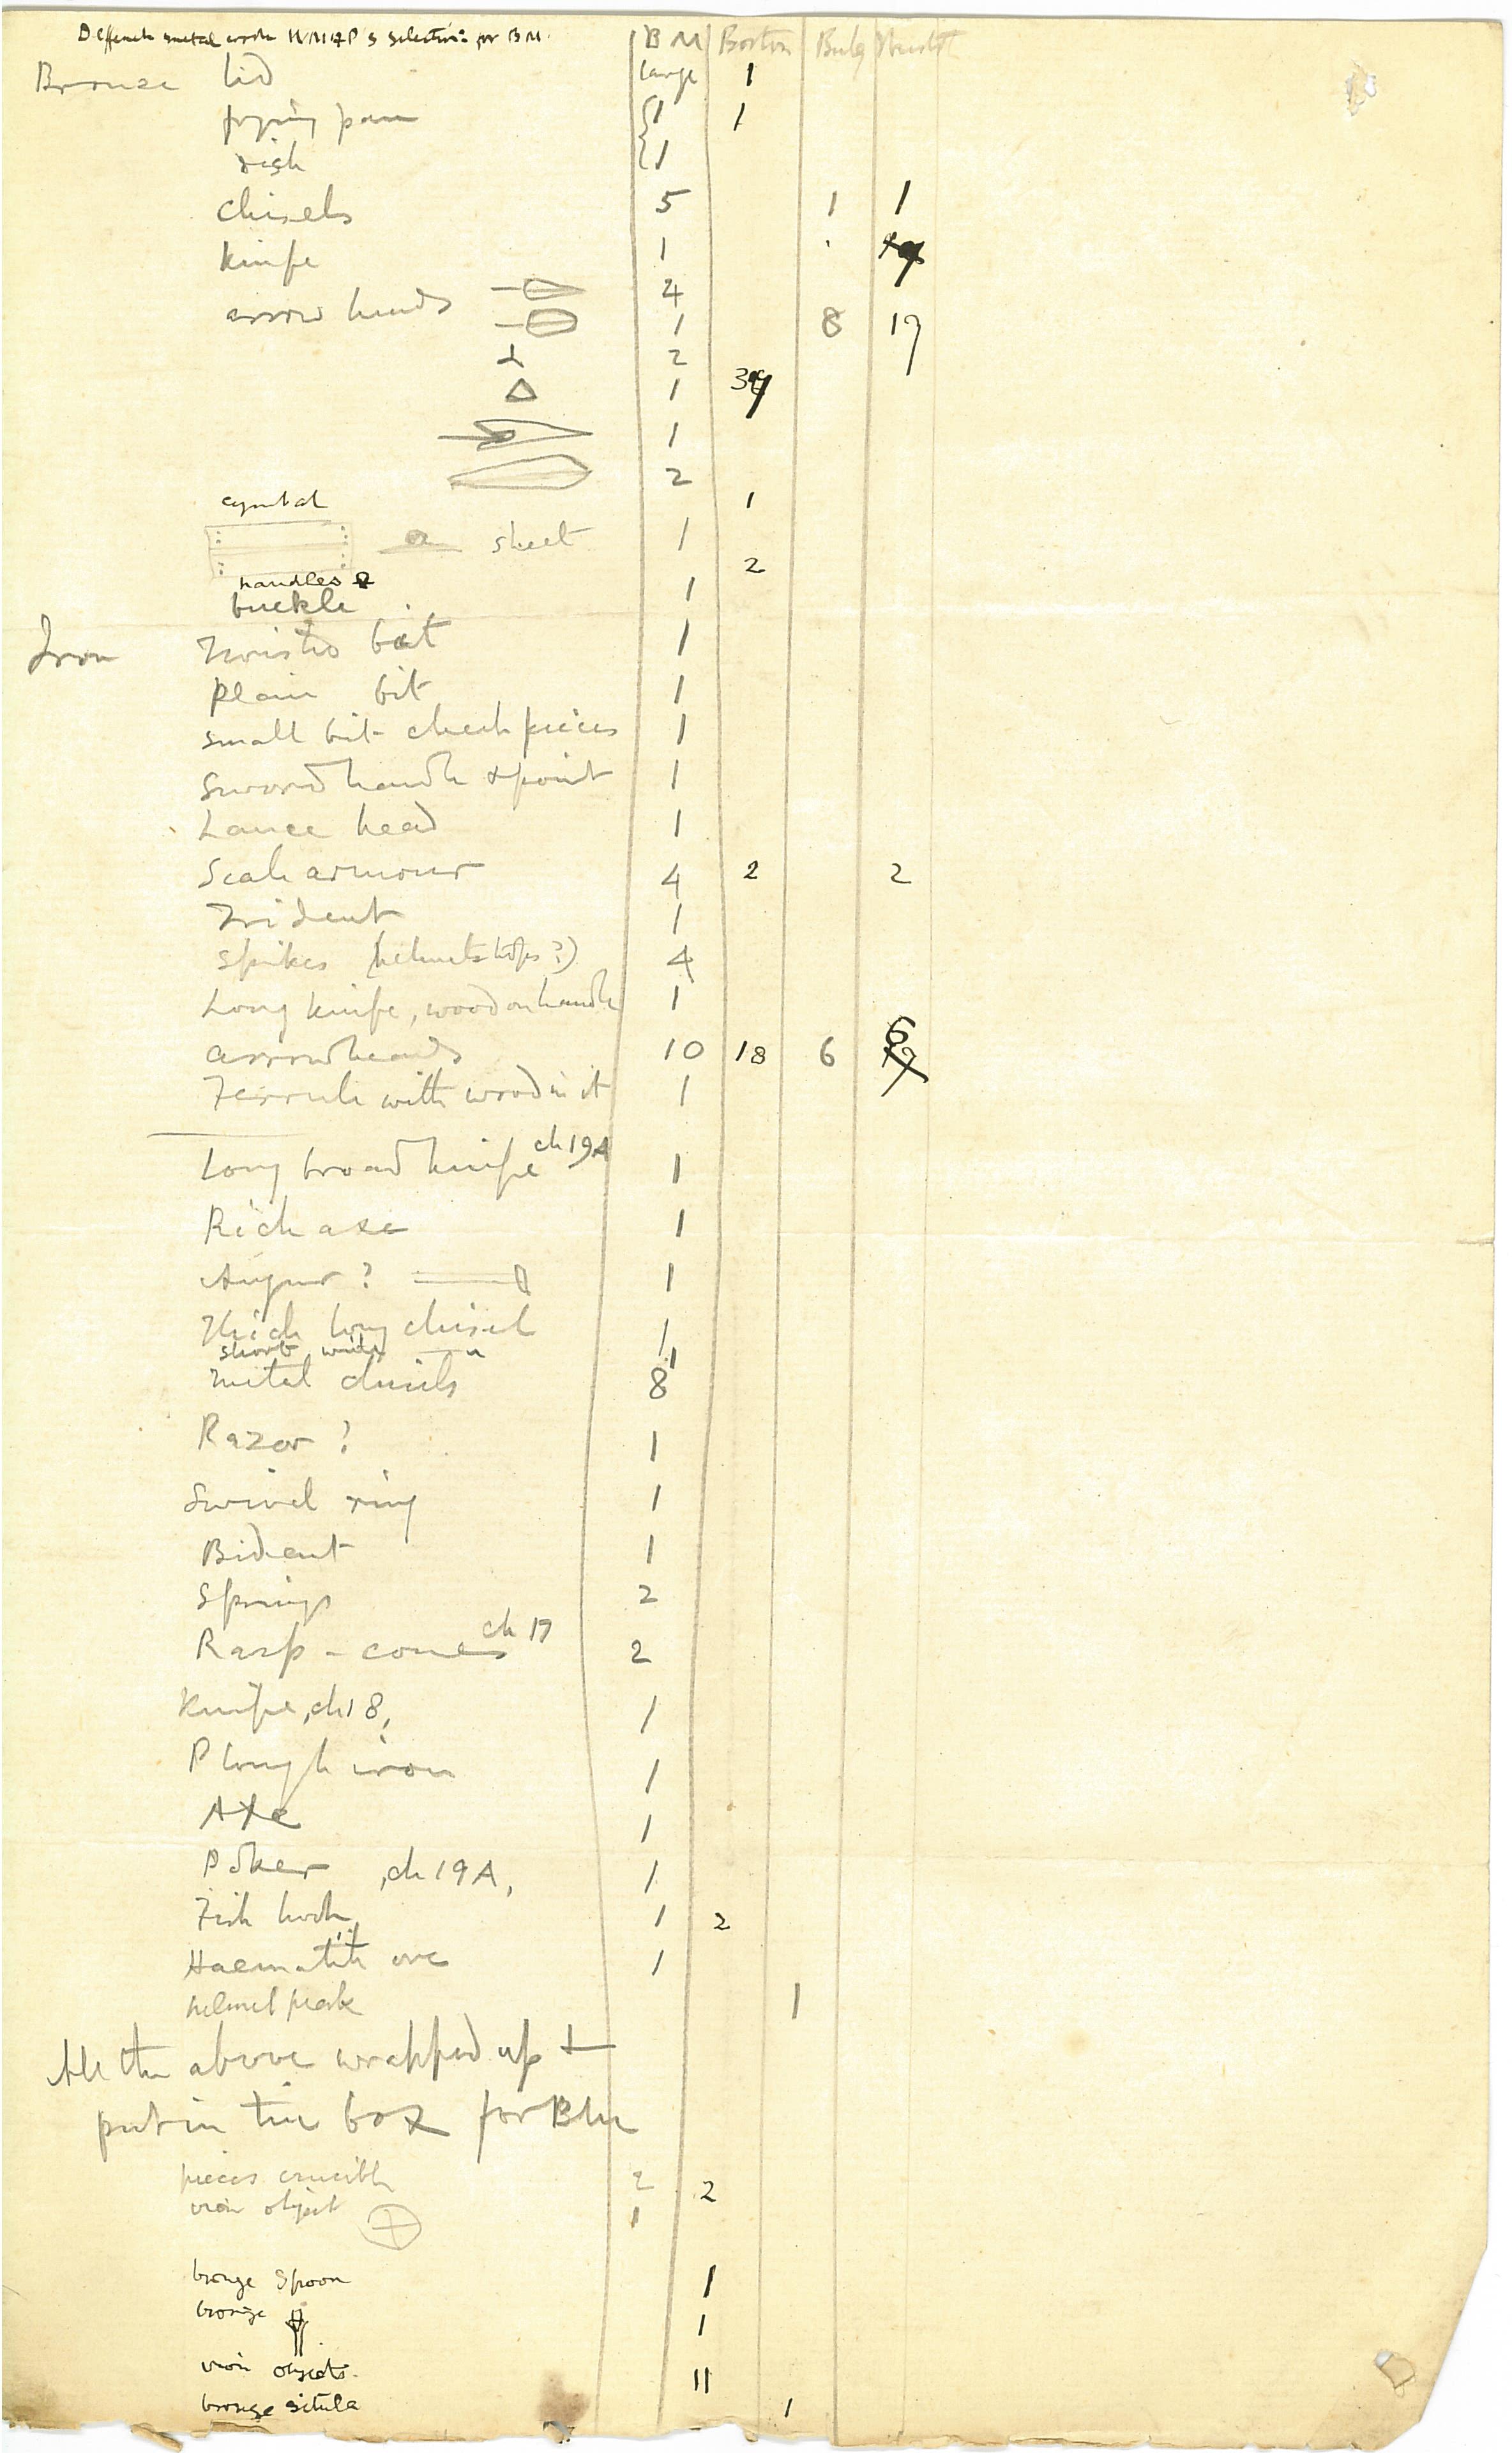 Deffeneh metal work WMFP's selection for BM. BM Boston Bulq
Bronze lid large 1
frying pan 1 1
dish 1
chisels 5 1 1
knife 1
arrow heads 4
1 8 17
2
1 3
1
2
cymbal 1
sheet 1
handles 2
buckle 1
Iron Twisted bit 1
Plain bit 1
Small bit cheek pieces 1
Sword handle & point 1
Lance head 1
Scale armour 4 2 2
Trident 1
Spikes (helmets tops?) 4
Long knife, wood on handle 1
arrowheads 10 18 6 6
Ferrule with wood in it 1
Long broad knife ch 19A 1
Pick axe 1
Augur? 1
Thick long chisel 1
short wide 1
metal chisels 8
Razor? 1
Swivel ring 1
Bident 1
Springs 2
Rasp-cones ch 17 2
Knife, ch 18, 1
Plough iron 1
Axe 1
Poker, ch 19A, 1
Fish hook 1 2
Haematite ore 1
helmet peak 1
All the above wrapped up &
put in tin box for BM
pieces crucible 2 2
iron object 1
bronze spoon 1
bronze 1
iron objects. 11
bronze situla 1